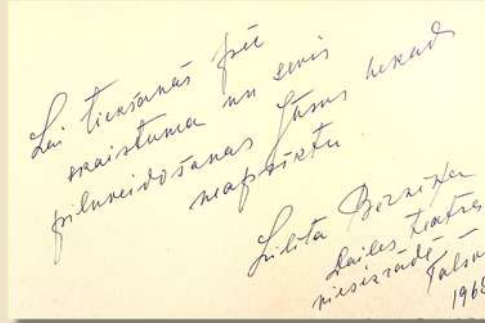 Lai tiekšanās pēc
skaistuma un sevis
pilnveidošanas Jūsos nekad
neapsīktu.
Lilita Bērziņa
Dailes teātra
viesizrādē Talsos
1968